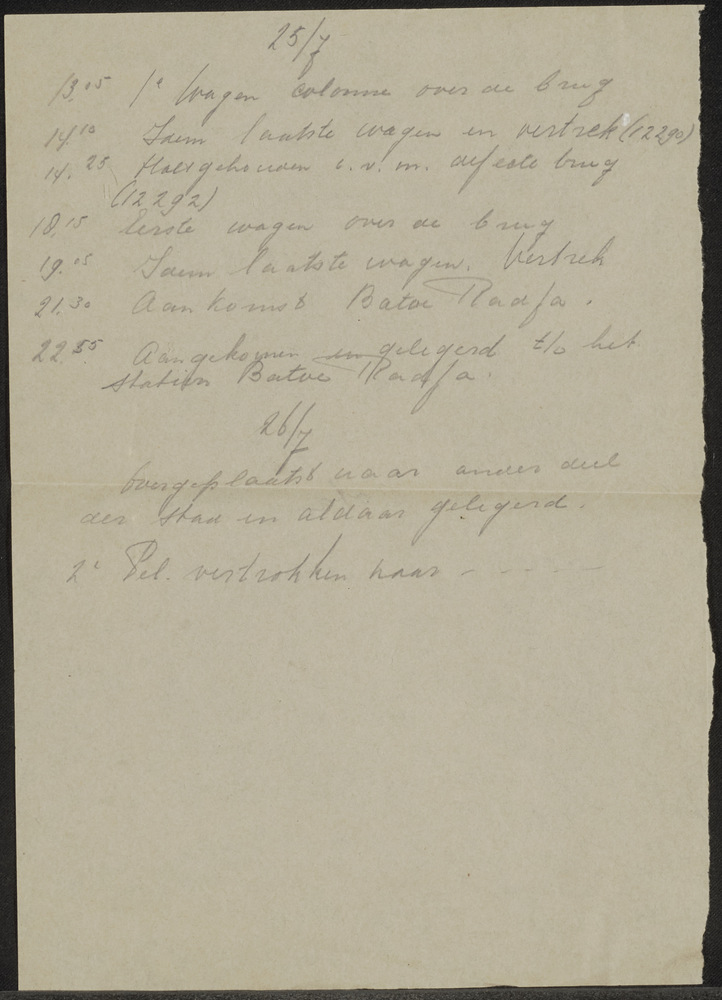 25/7
13.05 1e Wagen colonne over de brug
14.10 Idem laatste wagen en vertrek (12290)
14.25 Halt gehouden i.v.m. defecte brug
(12292)
18.15 Eerste wagen over de brug
19.05 Idem laatste wagen. Vertrek
21.30 Aankomst Batoe Radja.
22.55 Aangekomen en gelegerd t/o het
station Batoe Radja.
26/7
Overgeplaatst naar ander deel
der stad en aldaar gelegerd.
2e Pel. vertrokken naar - - - - -